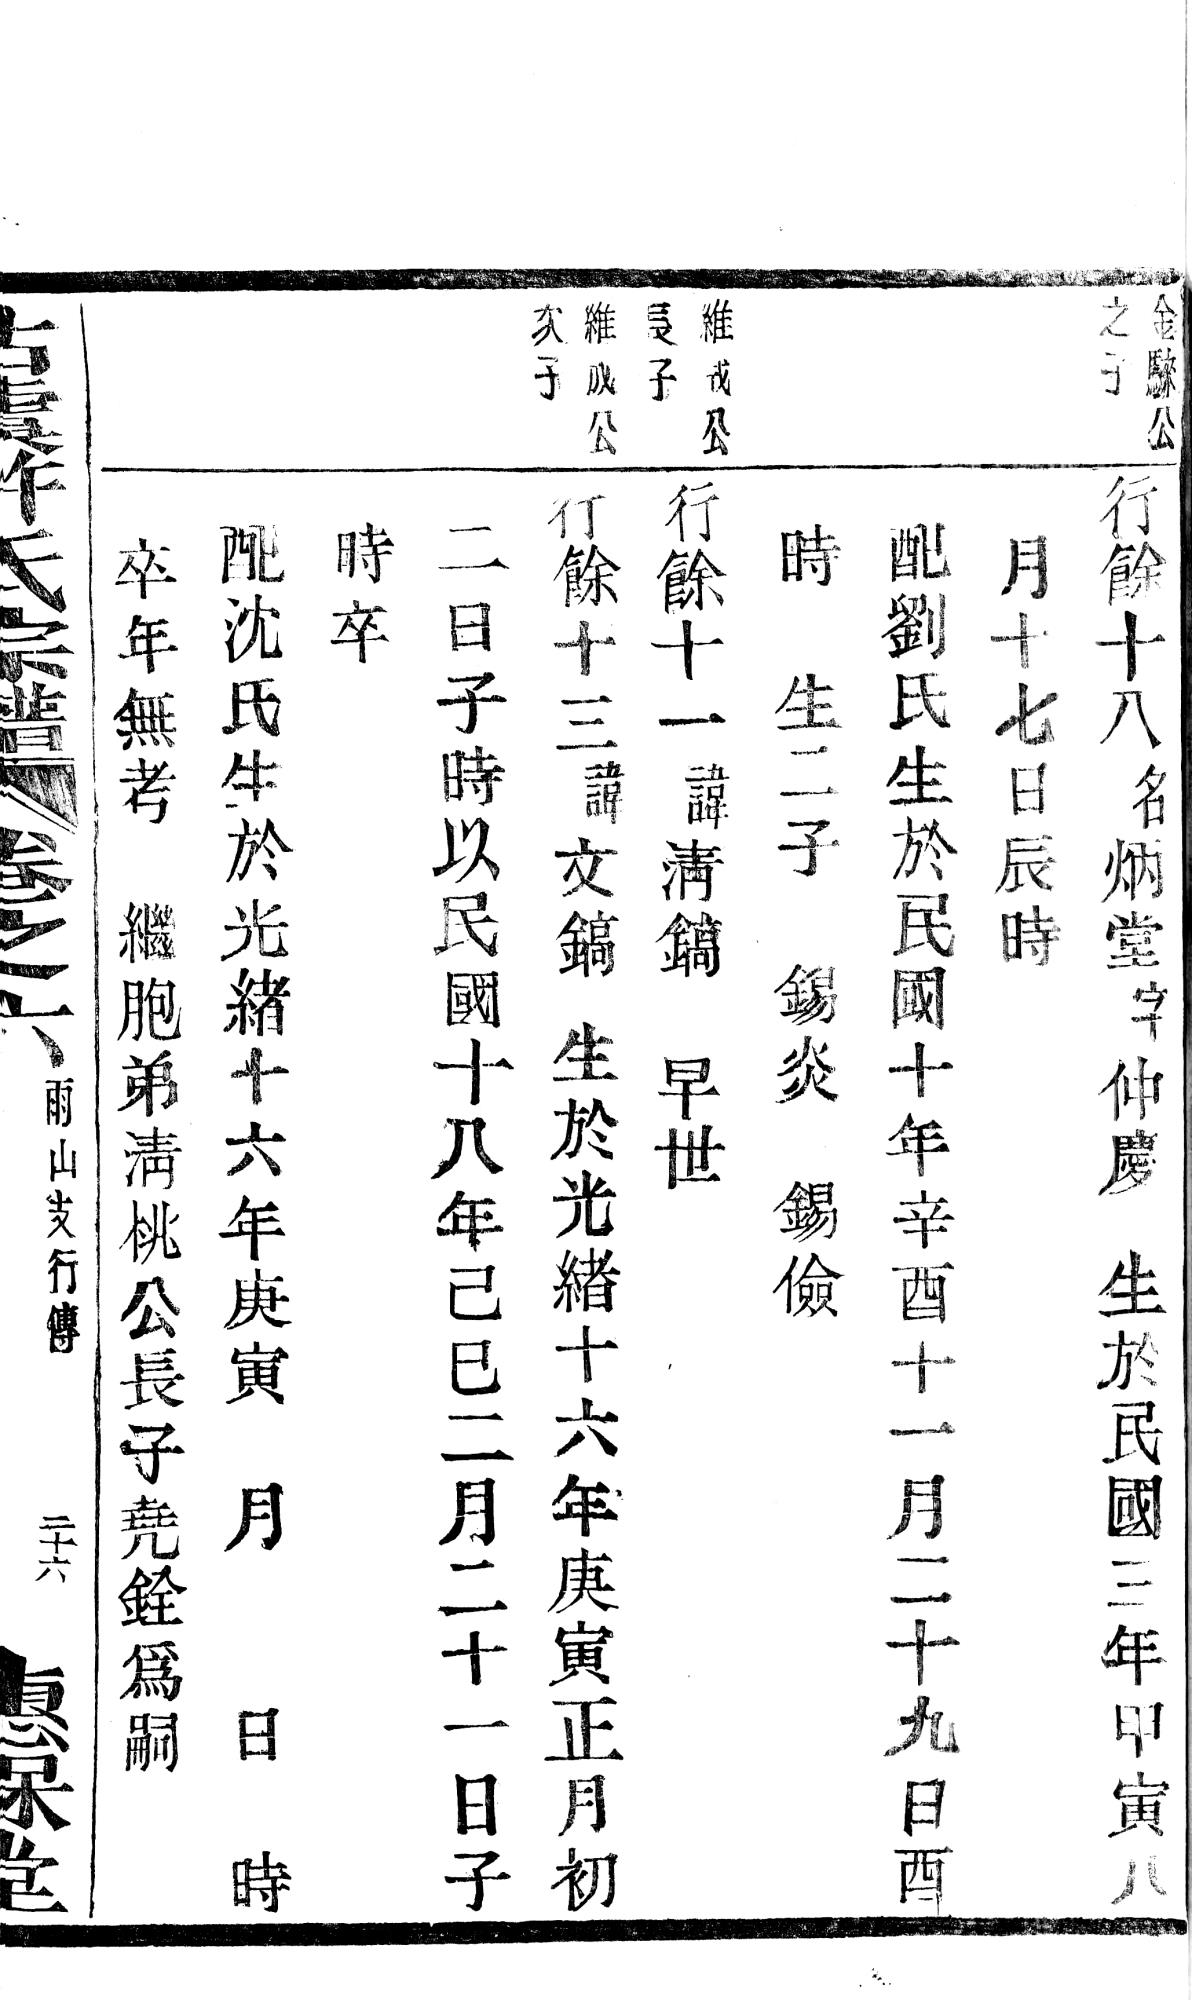 金騋公
之子
行餘十八名炳堂字仲慶　生於民國三年甲寅八
月十七日辰時
配劉氏生於民國十年辛酉十一月二十九日酉
時　生二子　錫炎　錫儉
維成公
長子
行餘十一　諱清鎬　早世
維成公
次子
行餘十三諱文鎬　生於光緒十六年庚寅正月初
二日子時以民國十八年己巳二月二十一日子
時卒
配沈氏生於光緒十六年庚寅　月　　日　時
卒年無考　繼胞弟清桃公長子堯銓爲嗣
氏宗譜
卷之六
雨山支行傳
二十六
惠保堂